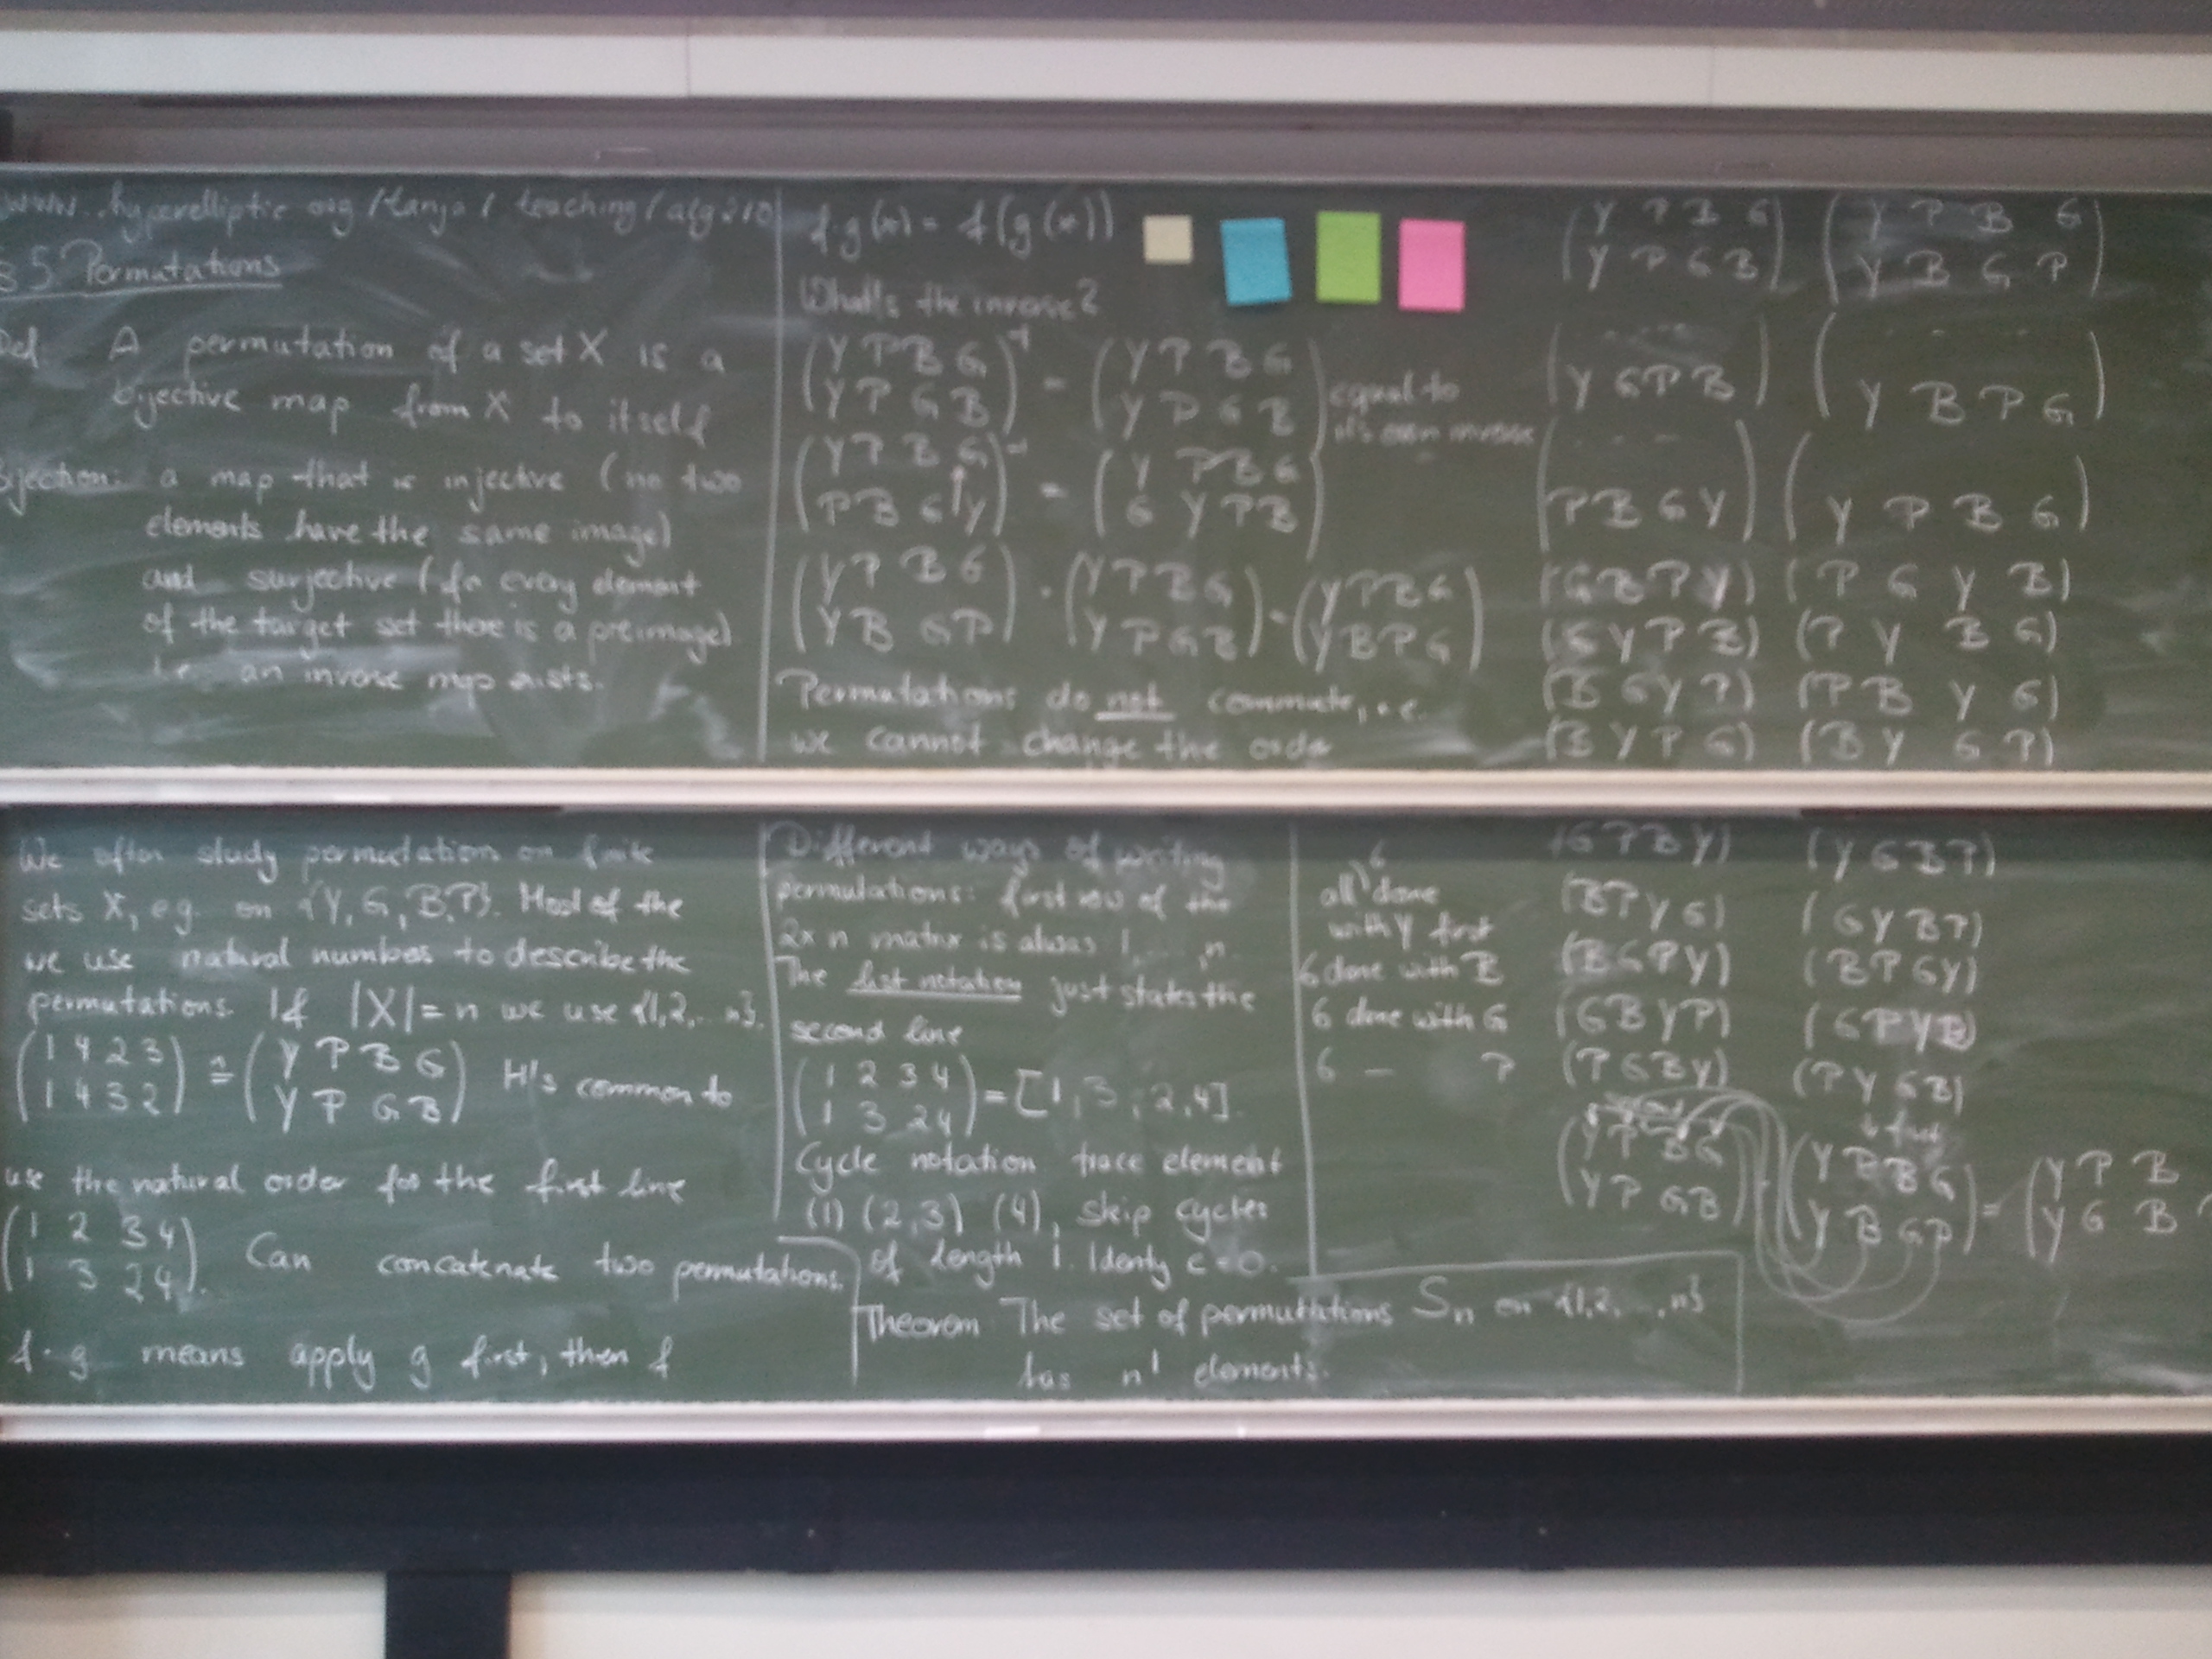 www.hyperelliptic.org/tanja/teaching/alg210
§5 Permutations
Def. A permutation of a set X is a
bijective map from X to itself
Bijection: a map that is injective (no two
elements have the same image)
and surjective (for every element
of the target set there is a preimage)
i.e. an inverse map exists.
f·g(x) = f(g(x))
What's the inverse?
(Y P B G)⁻¹ = (Y P B G)
(Y P G B) (Y P G B)
equal to
it's own inverse
(Y P B G)⁻¹ = (Y P B G)
(P B G Y) (G Y P B)
(Y P B G) · (Y P B G) = (Y P B G)
(Y B G P) (Y P G B) (Y B P G)
Permutations do not commute, i.e.
we cannot change the order
(Y P B G) (Y P B G)
(Y P G B) (Y B G P)
(Y G P B) (Y B P G)
(P B G Y) (Y P B G)
(G B P Y) (P G Y B)
(G Y P B) (P Y B G)
(B G Y P) (P B Y G)
(B Y P G) (B Y G P)
We often study permutation on finite
sets X, e.g. on {Y, G, B, P}. Most of the
we use natural numbers to describe the
permutations. If |X| = n we use {1,2,...n}.
(1 4 2 3) ≙ (Y P B G) It's common to
(1 4 3 2) (Y P G B)
use the natural order for the first line
(1 2 3 4)
(1 3 2 4). Can concatenate two permutations.
f·g means apply g first, then f
Different ways of writing
permutations: first row of the
2×n matrix is alwas 1, ..., n.
The list notation just states the
second line
(1 2 3 4) = [1, 3, 2, 4].
(1 3 2 4)
Cycle notation trace element
(1) (2,3) (4), skip cycles
of length 1. Identy c=0.
Theorem The set of permutations Sn on {1,2,...,n}
has n! elements.
6
all done
with Y first
6 done with B
6 done with G
6 — P
(G P B Y) (Y G B P)
(B P Y G) (G Y B P)
(B G P Y) (B P G Y)
(G B Y P) (G P Y B)
(P G B Y) (P Y G B)
first
(Y P B G) · (Y P B G) = (Y P B
(Y P G B) (Y B G P) (Y G B